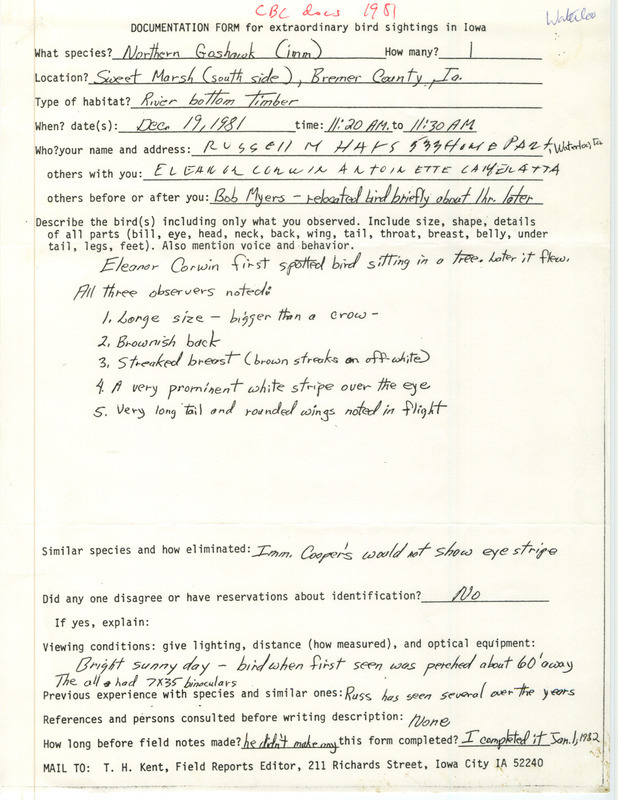 CBC docs 1981
Waterloo
DOCUMENTATION FORM for extraordinary bird sightings in Iowa
What species? Northern Goshawk (imm) How many? 1
Location? Sweet Marsh (south side), Bremer County, Ia.
Type of habitat? River bottom Timber
When? date(s): Dec. 19, 1981 time: 11:20 AM. to 11:30 AM
Who? your name and address: RUSSELL M HAYS 533 HOME PARK, Waterloo, Ia
others with you: ELEANOR CORWIN ANTOINETTE CAMERATTA
others before or after you: Bob Myers - relocated bird briefly about 1 hr. later
Describe the bird(s) including only what you observed. Include size, shape, details
of all parts (bill, eye, head, neck, back, wing, tail, throat, breast, belly, under
tail, legs, feet). Also mention voice and behavior.
Eleanor Corwin first spotted bird sitting in a tree. Later it flew.
All three observers noted:
1. Large size - bigger than a crow -
2. Brownish back
3. Streaked breast (brown streaks on off-white)
4. A very prominent white stripe over the eye
5. Very long tail and rounded wings noted in flight
Similar species and how eliminated: Imm. Cooper's would not show eye stripe
Did any one disagree or have reservations about identification? No
If yes, explain:
Viewing conditions: give lighting, distance (how measured), and optical equipment:
Bright sunny day - bird when first seen was perched about 60' away
The all had 7X35 binoculars
Previous experience with species and similar ones: Russ has seen several over the years
References and persons consulted before writing description: None
How long before field notes made? he didn't make any this form completed? I completed it Jan. 1, 1982
MAIL TO: T. H. Kent, Field Reports Editor, 211 Richards Street, Iowa City IA 52240